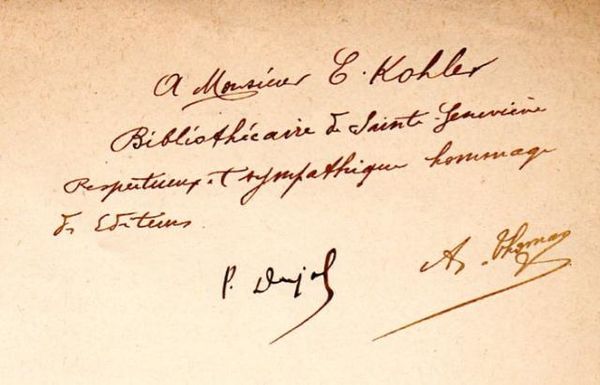 A Monsieur C. Kohler
Bibliothécaire de Sainte Geneviève
Respectueux et sympathique hommage
des Editeurs
P. Dujol A. Thomas